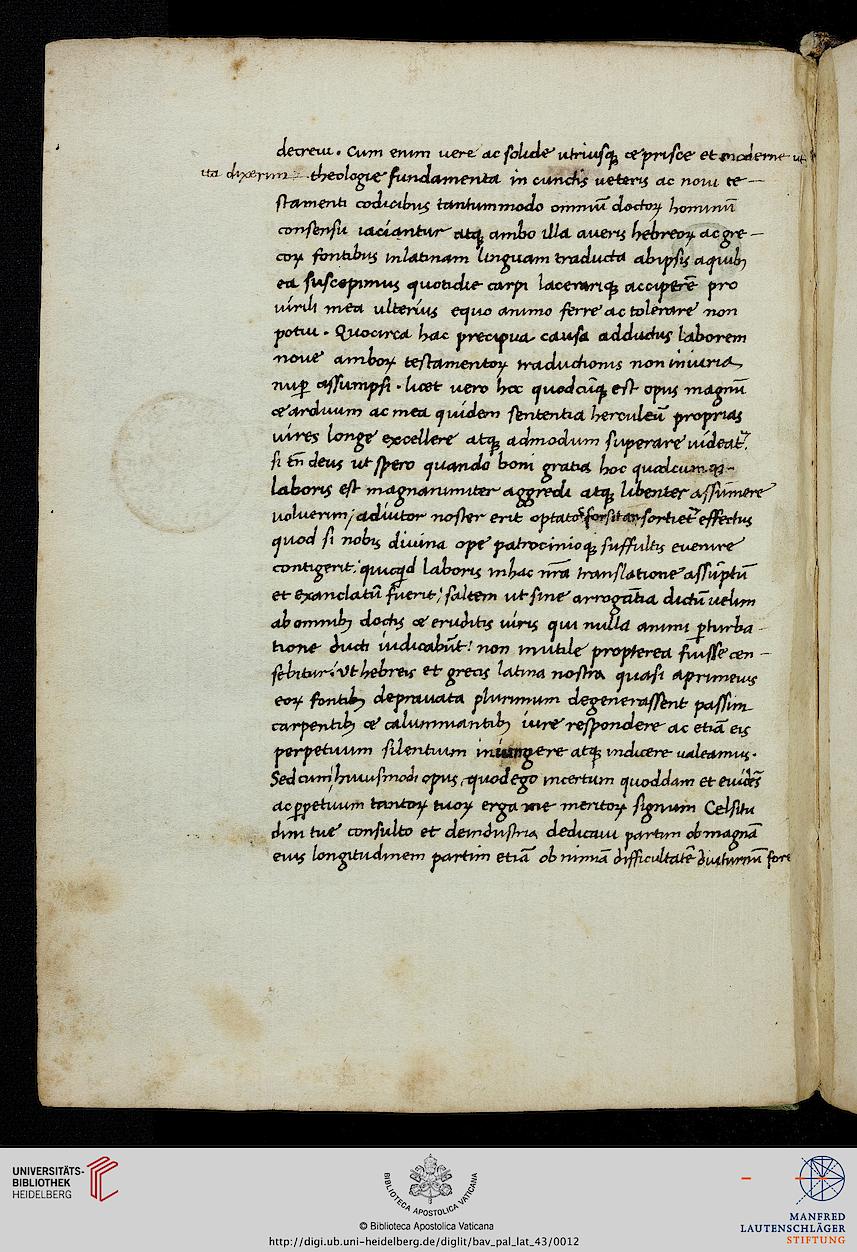 decreui. Cum enim uere ac solide utriusq; ac prisce et moderne ut
ita dixerim theologie fundamenta in cunctis ueteris ac noui te-
stamenti codicibus tantummodo omniū doctoꝝ hominū
consensu iaciantur atq; ambo illa a ueris hebreoꝝ ac gre-
coꝝ fontibus in latinam linguam traducta ab ipsis a quibꝫ
ea suscepimus quotidie carpi lacerariq; acciperē pro
uirili mea ulterius equo animo ferre ac tolerare non
potui. Quocirca hac precipua causa adductus laborem
noue amboꝝ testamentoꝝ traductionis non iniuria
nuꝑ assumpsi. licet uero hoc quodcūq; est opus magnū
ac arduum ac mea quidem sententia herculeū proprias
uires longe excellere atq; admodum superare uideat᷑.
si tn̄ deus ut spero quando boni gratia hoc quodcumq;
laboris est magnanimiter aggredi atq; libenter assumere
uoluerim, adiutor noster erit optatos forsitan sortiet᷑ effectus
quod si nobis diuina ope patrocinioq; suffultis euenire
contigerit, quicqd laboris in hac nr̄a translatione assūptū
et exanclatū fuerit, saltem ut sine arrogātia dictū uelim
ab omnibꝫ doctis ac eruditis uiris qui nulla animi ꝑturba-
tione ducti iudicabūt, non inutile propterea fuisse cen-
sebitur, ut hebreis et grecis latina nostra quasi a primeuis
eoꝝ fontibꝫ deprauata plurimum degenerassent passim
carpentibꝫ ac calumniantibꝫ iure respondere ac etiā eis
perpetuum silentium iniungere atq; indicere ualeamus.
Sed cum huiusmodi opus, quod ego incertum quoddam et euidēs
ac ꝑpetuum tantoꝝ tuoꝝ erga me meritoꝝ signum Celsitu
dini tue consulto et de industria dedicaui partim ob magnā
eius longitudinem partim etiā ob nimiā difficultatē diuturnū fore
UNIVERSITÄTS-
BIBLIOTHEK
HEIDELBERG
BIBLIOTECA APOSTOLICA VATICANA
© Biblioteca Apostolica Vaticana
http://digi.ub.uni-heidelberg.de/diglit/bav_pal_lat_43/0012
MANFRED
LAUTENSCHLÄGER
STIFTUNG